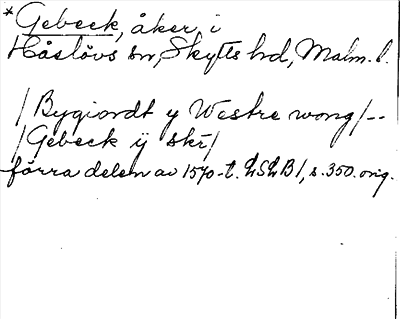 *Gebeck, åker, i
Håslövs sn, Skytts hd, Malm. l.
/Bygiordt y Westre wong/--
/Gebeck ij skr/
förra delen av 1570-t. LSLB1, s. 350. orig.